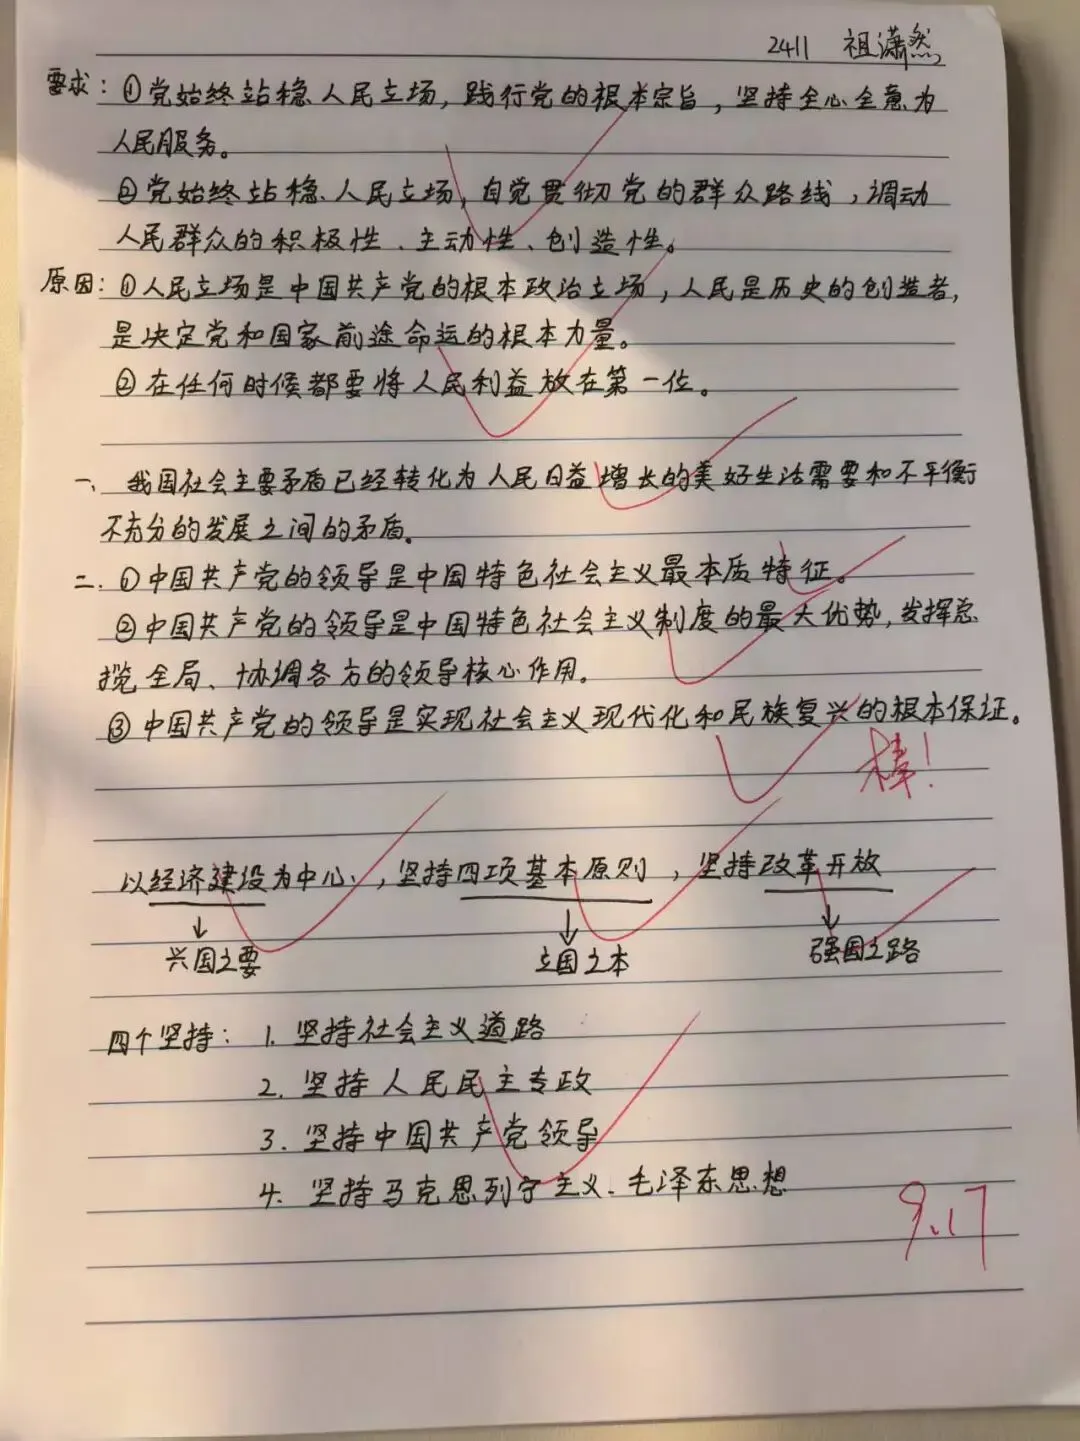 2411 祖潇然
要求：①党始终站稳人民立场，践行党的根本宗旨，坚持全心全意为
人民服务。
②党始终站稳人民立场，自觉贯彻党的群众路线，调动
人民群众的积极性、主动性、创造性。
原因：①人民立场是中国共产党的根本政治立场，人民是历史的创造者，
是决定党和国家前途命运的根本力量。
②在任何时候都要将人民利益放在第一位。
一、我国社会主要矛盾已经转化为人民日益增长的美好生活需要和不平衡
不充分的发展之间的矛盾。
二、①中国共产党的领导是中国特色社会主义最本质特征。
②中国共产党的领导是中国特色社会主义制度的最大优势，发挥总
揽全局、协调各方的领导核心作用。
③中国共产党的领导是实现社会主义现代化和民族复兴的根本保证。
棒！
以经济建设为中心，坚持四项基本原则，坚持改革开放
兴国之要 立国之本 强国之路
四个坚持：1. 坚持社会主义道路
2. 坚持人民民主专政
3. 坚持中国共产党领导
4. 坚持马克思列宁主义、毛泽东思想
9.17